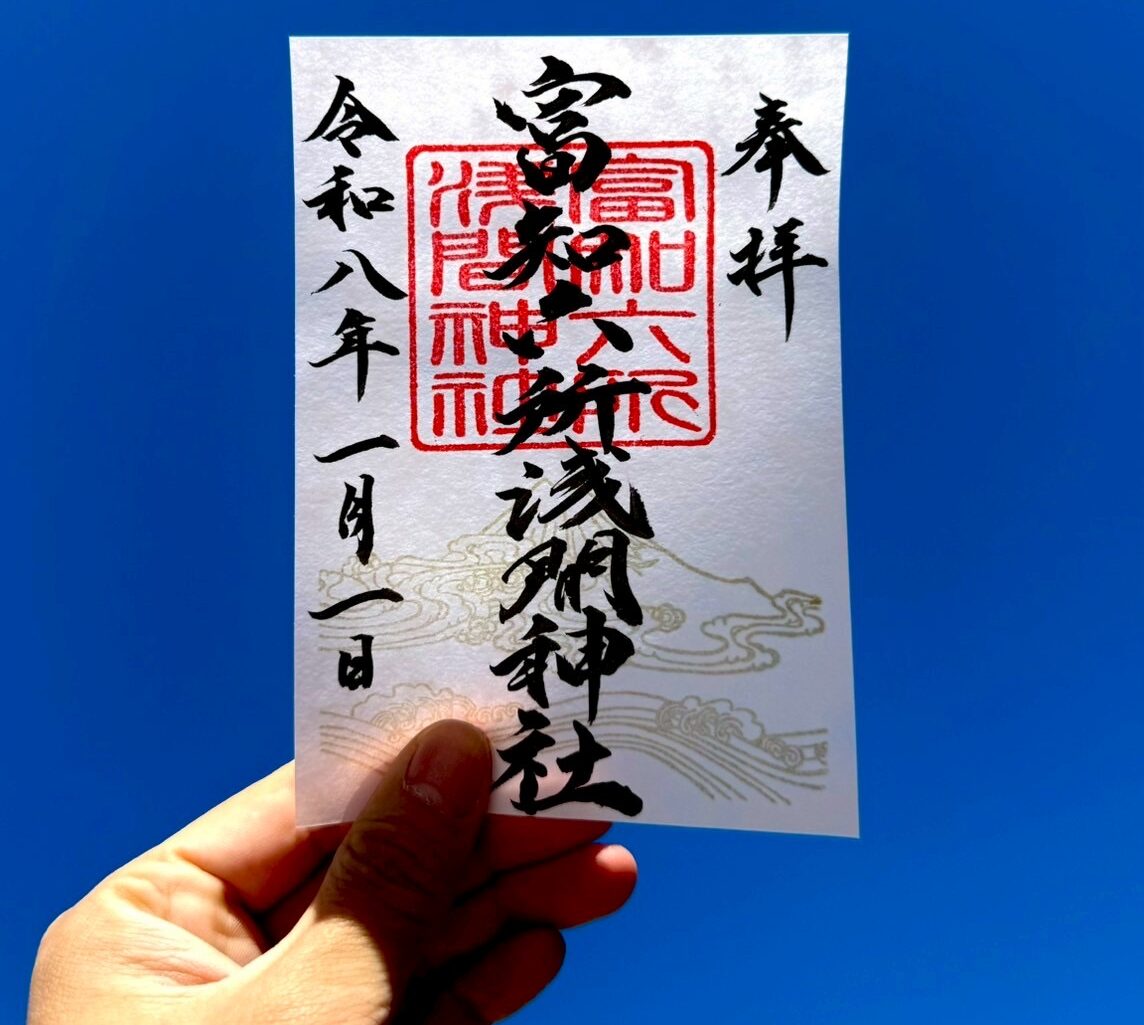 奉拝
富知六所浅間神社
富知六所
浅間神社
令和八年 一月一日